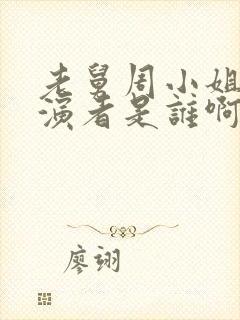 老舅周小姐
演者是誰啊
廖翊